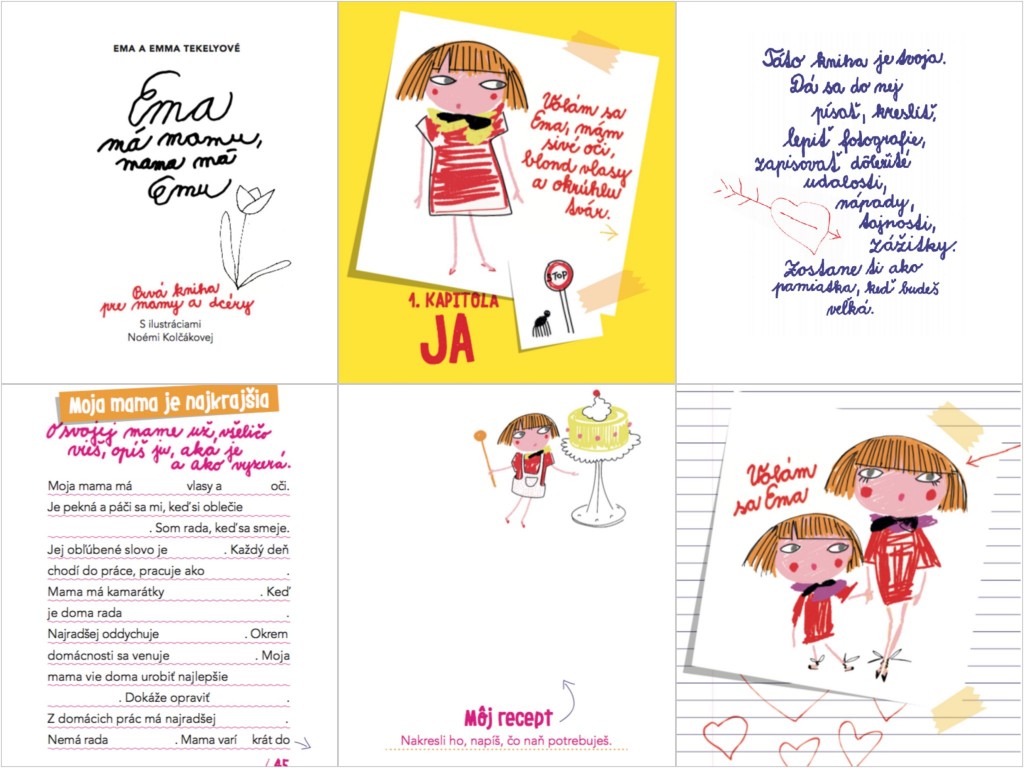 EMA A EMMA TEKELYOVÉ
Ema
má mamu,
mama má
Emu
Prvá kniha
pre mamy a dcéry
S ilustráciami
Noémi Kolčákovej
Volám sa
Ema, mám
sivé oči,
blond vlasy
a okrúhlu
tvár.
STOP
1. KAPITOLA
JA
Táto kniha je tvoja.
Dá sa do nej
písať, kresliť,
lepiť fotografie,
zapisovať dôležité
udalosti,
nápady,
tajnosti,
zážitky.
Zostane ti ako
pamiatka, keď budeš
veľká.
Moja mama je najkrajšia
O svojej mame už všeličo
vieš, opíš ju, aká je
a ako vyzerá.
Moja mama má vlasy a oči.
Je pekná a páči sa mi, keď si oblečie
. Som rada, keď sa smeje.
Jej obľúbené slovo je . Každý deň
chodí do práce, pracuje ako .
Mama má kamarátky . Keď
je doma rada .
Najradšej oddychuje . Okrem
domácnosti sa venuje . Moja
mama vie doma urobiť najlepšie
. Dokáže opraviť .
Z domácich prác má najradšej .
Nemá rada . Mama varí krát do
Môj recept
Nakresli ho, napíš, čo naň potrebuješ.
Volám
sa Ema